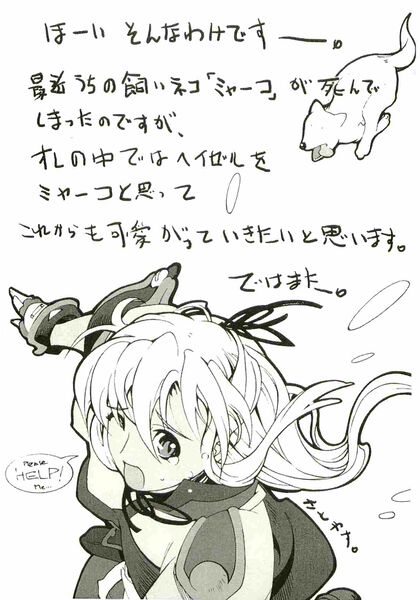 ほーい そんなわけですー。
最近うちの飼いネコ「ミャーコ」が死んで
しまったのですが、
オレの中ではヘイゼルを
ミャーコと思って
これからも可愛がっていきたいと思います。
ではまたー。
Please
HELP!
me...
さとやす。